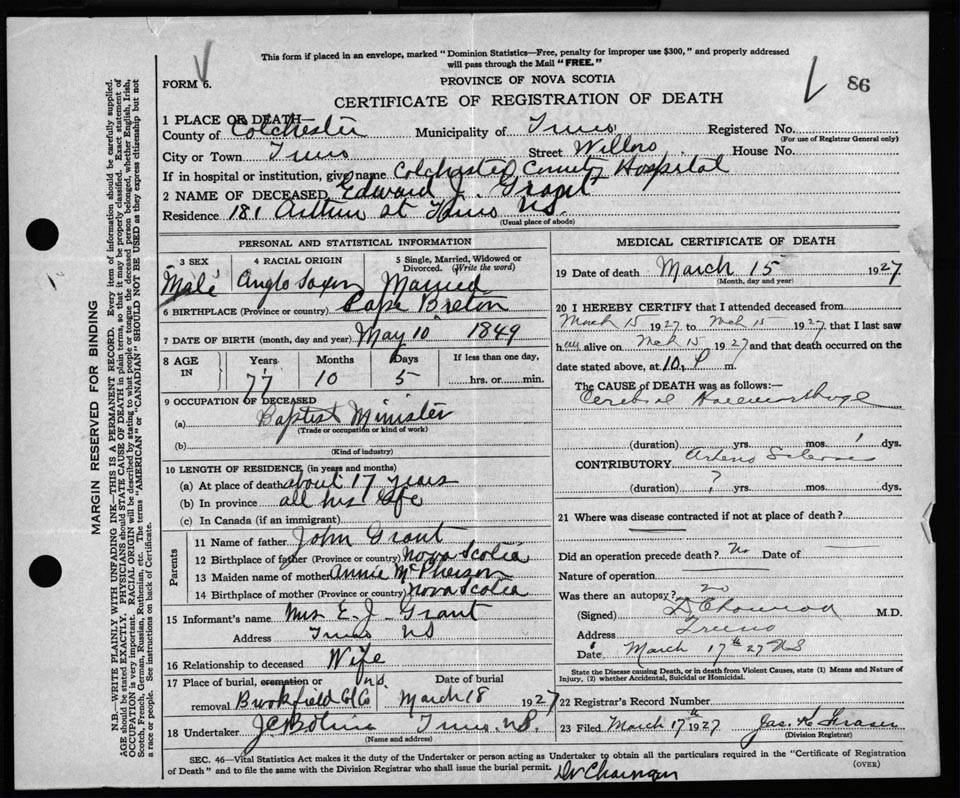 This form if placed in an envelope, marked "Dominion Statistics—Free, penalty for improper use $300," and properly addressed
will pass through the Mail "FREE."
FORM 6.
PROVINCE OF NOVA SCOTIA
86
CERTIFICATE OF REGISTRATION OF DEATH
1 PLACE OF DEATH—
County of Colchester Municipality of Truro Registered No.
(For use of Registrar General only)
City or Town Truro Street Willow House No.
If in hospital or institution, give name Colchester County Hospital
2 NAME OF DECEASED Edward J. Grant
Residence 181 Arthur st Truro NS.
(Usual place of abode)
PERSONAL AND STATISTICAL INFORMATION
3 SEX 4 RACIAL ORIGIN 5 Single, Married, Widowed or
Divorced. (Write the word)
Male Anglo Saxon Married
6 BIRTHPLACE (Province or country) Cape Breton
7 DATE OF BIRTH (month, day and year) May 10 1849
8 AGE IN Years Months Days If less than one day,
77 10 5 hrs. or min.
9 OCCUPATION OF DECEASED
(a) Baptist Minister
(Trade or occupation or kind of work)
(b)
(Kind of industry)
10 LENGTH OF RESIDENCE (in years and months)
(a) At place of death about 17 years
(b) In province all his life
(c) In Canada (if an immigrant)
Parents
11 Name of father John Grant
12 Birthplace of father (Province or country) Nova Scotia
13 Maiden name of mother Annie McPherson
14 Birthplace of mother (Province or country) Nova Scotia
15 Informant's name Mrs E. J. Grant
Address Truro NS
16 Relationship to deceased Wife
17 Place of burial, cremation or Date of burial
removal Brookfield Col Co March 18 1927
18 Undertaker Truro. NS.
(Name and address)
MEDICAL CERTIFICATE OF DEATH
19 Date of death March 15 1927
(Month, day and year)
20 I HEREBY CERTIFY that I attended deceased from
March 15 1927 to Mch 15 1927 that I last saw
him alive on Mch 15 1927 and that death occurred on the
date stated above, at 10 P m.
The CAUSE OF DEATH was as follows:—
Cerebral Haemorrhage
(duration) yrs. mos. 1 dys.
CONTRIBUTORY Arterio Sclerosis
(duration) ? yrs. mos. dys.
21 Where was disease contracted if not at place of death?
Did an operation precede death? No Date of
Nature of operation
Was there an autopsy? no
(Signed) M.D.
Address Truro
Date March 17th 27 NS
State the Disease causing Death, or in death from Violent Causes, state (1) Means and Nature of
Injury, (2) whether Accidental, Suicidal or Homicidal.
22 Registrar's Record Number
23 Filed March 17th 1927 Jas. K. Fraser
(Division Registrar)
SEC. 46—Vital Statistics Act makes it the duty of the Undertaker or person acting as Undertaker to obtain all the particulars required in the "Certificate of Registration
of Death" and to file the same with the Division Registrar who shall issue the burial permit.
(OVER)
MARGIN RESERVED FOR BINDING
N.B.—WRITE PLAINLY WITH UNFADING INK—THIS IS A PERMANENT RECORD. Every item of information should be carefully supplied.
AGE should be stated EXACTLY. PHYSICIANS should STATE CAUSE OF DEATH in plain terms, so that it may be properly classified. Exact statement of
OCCUPATION is very important. RACIAL ORIGIN will be described by stating to what people or tongue the deceased person belonged, whether English, Irish,
Scotch, French, German, Russian, Ruthenian, etc. The terms "AMERICAN" or "CANADIAN" SHOULD NOT BE USED as they express citizenship but not
a race or people. See instructions on back of Certificate.